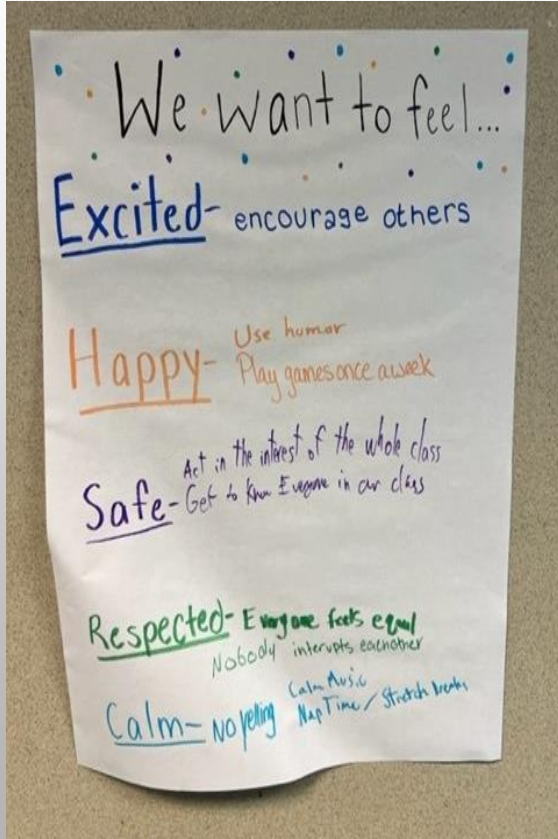 We want to feel...
Excited- encourage others
Use humor
Happy- Play games once a week
Act in the interest of the whole class
Safe- Get to know Everyone in our class
Respected- Everyone feels equal
Nobody interupts eachother
Calm Music
Calm- No yelling Nap Time / Stretch breaks